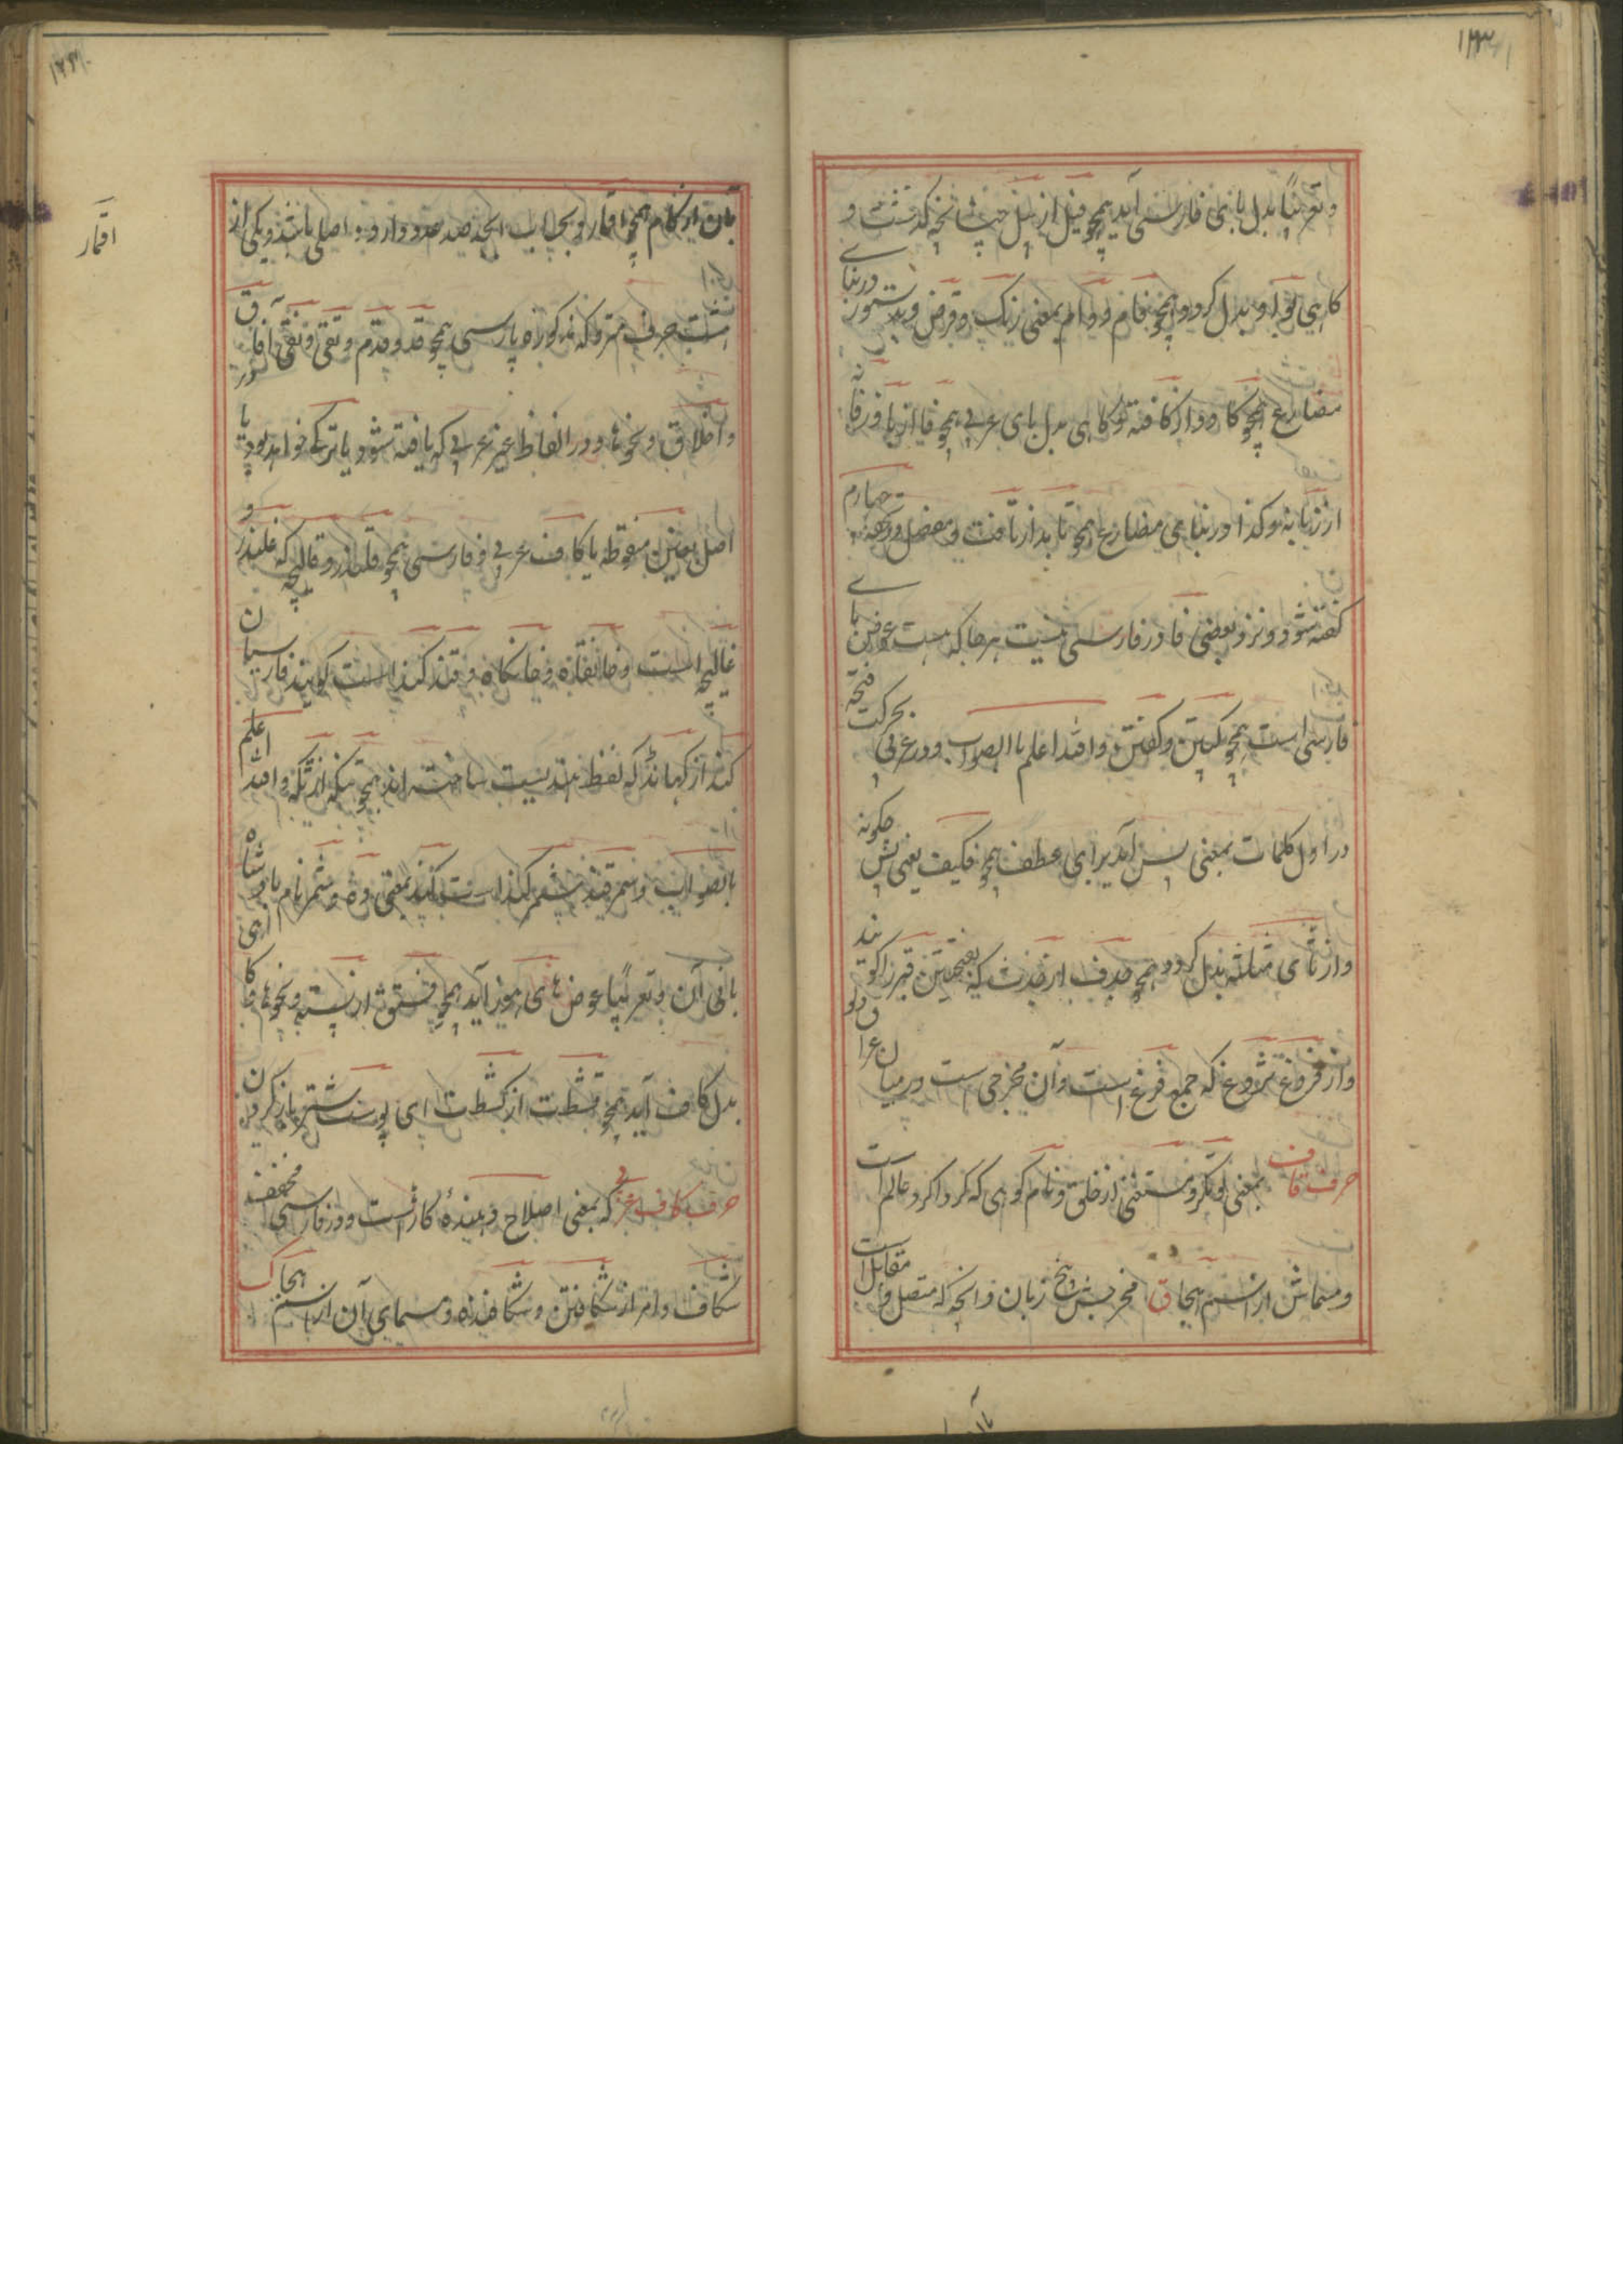 ۱۲۳
و تعریباً بدل بای فارسی آید همچو فیل از پیل چنانچه گذشت و
کاهی بواو بدل گردد همچو فام و وام بمعنی رنگ و قرض و بدستور در بنای
مضارع همچو کاود از کافته و کاهی بدل بای عربی همچو
از زبانه و کذا در بنای مضارع همچو تابد از تافت و مفصل در چهارم
گفته شود و نزد بعضی فا در فارسی نیست هرجا که هست عوض بای
فارسی است همچو و گفتن والله اعلم بالصواب و در عربی بحرکت فتحه
در اول کلمات بمعنی پس آید برای عطف همچو فکیف یعنی پس چگونه
و از ثای مثلثه بدل گردد همچو جدف از جدث که بفتحتین قبر را گویند
و از فروغ ثروغ که جمع فرغ است و آن مخرجی است در میان
حرف قاف بمعنی توانگر و مستغنی از خلق و نام کوهی که گرداگرد عالم است
و مسماش از اسم هجا ق مخرجش و بیخ زبان و آنچه که متصل و مقابل است
اقمار
بآن از کام همچو اقمار و بحساب ابجد صد عدد دارد و اصلی باشد و یکی از
هشت حرف متروکه مذکوره پارسی همچو قد و قدم و تقی و نقی و آفاق
و اخلاق و نحوها و در الفاظ غیر عربی که یافته شود یا ترکی خواهد بود یا در
اصل بغین منقوطه یا کاف عربی و فارسی همچو قلندر و قالیچه که غلندر و
غالیچه است و خانقاه و خانگاه و قند کند است گویند فارسیان
کند از کهاند که لفظ هندیست ساخته اند همچو والله اعلم
بالصواب و سمرقند شمرکند است کند بمعنی ده و شمر نام پادشاه
بانی آن و تعریباً عوض های هوز آید همچو فستق از پسته و نحوها
بدل کاف آید همچو قشطت از کشطت ای پوست شتر باز کردن
حرف کاف عربی که بمعنی اصلاح دهنده کار است و در فارسی مخفف
شکاف و امر از شکافتن و شکافنده و مسمای آن از اسم هجا ک